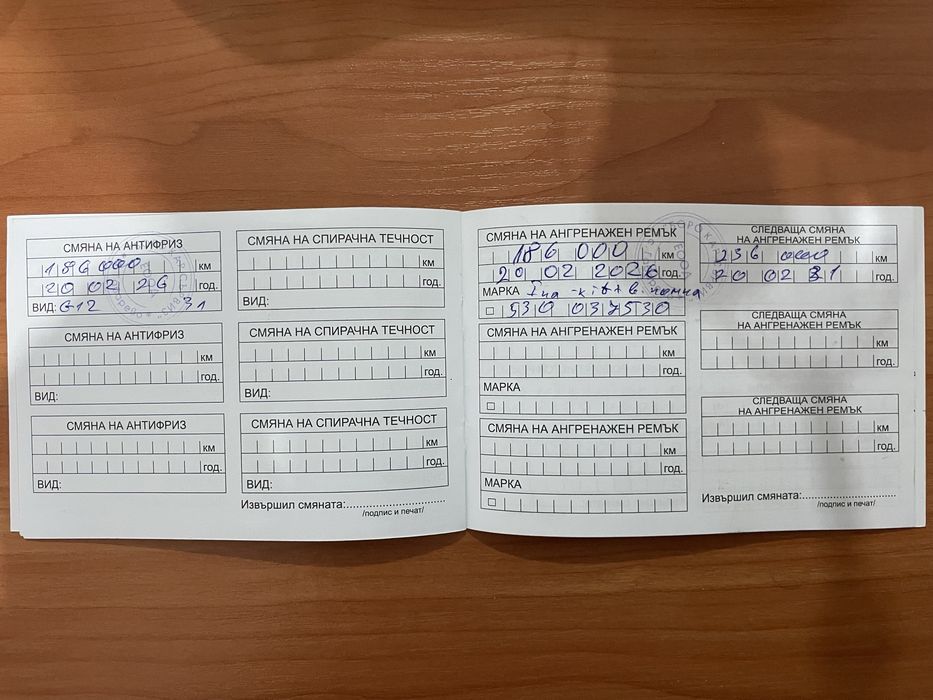 СМЯНА НА АНТИФРИЗ
186 000 км
20 02 26 год.
ВИД: G12 31
СМЯНА НА АНТИФРИЗ
км
год.
ВИД:
СМЯНА НА АНТИФРИЗ
км
год.
ВИД:
СМЯНА НА СПИРАЧНА ТЕЧНОСТ
км
год.
ВИД:
СМЯНА НА СПИРАЧНА ТЕЧНОСТ
км
год.
ВИД:
СМЯНА НА СПИРАЧНА ТЕЧНОСТ
км
год.
ВИД:
Извършил смяната:
/подпис и печат/
СМЯНА НА АНГРЕНАЖЕН РЕМЪК
186 000 км
20 02 2026 год.
МАРКА Ina -kit + в. помпа
530 037530
СМЯНА НА АНГРЕНАЖЕН РЕМЪК
км
год.
МАРКА
СМЯНА НА АНГРЕНАЖЕН РЕМЪК
км
год.
МАРКА
СЛЕДВАЩА СМЯНА
НА АНГРЕНАЖЕН РЕМЪК
236 000 км
20 02 31 год.
СЛЕДВАЩА СМЯНА
НА АНГРЕНАЖЕН РЕМЪК
км
год.
СЛЕДВАЩА СМЯНА
НА АНГРЕНАЖЕН РЕМЪК
км
год.
Извършил смяната:
/подпис и печат/